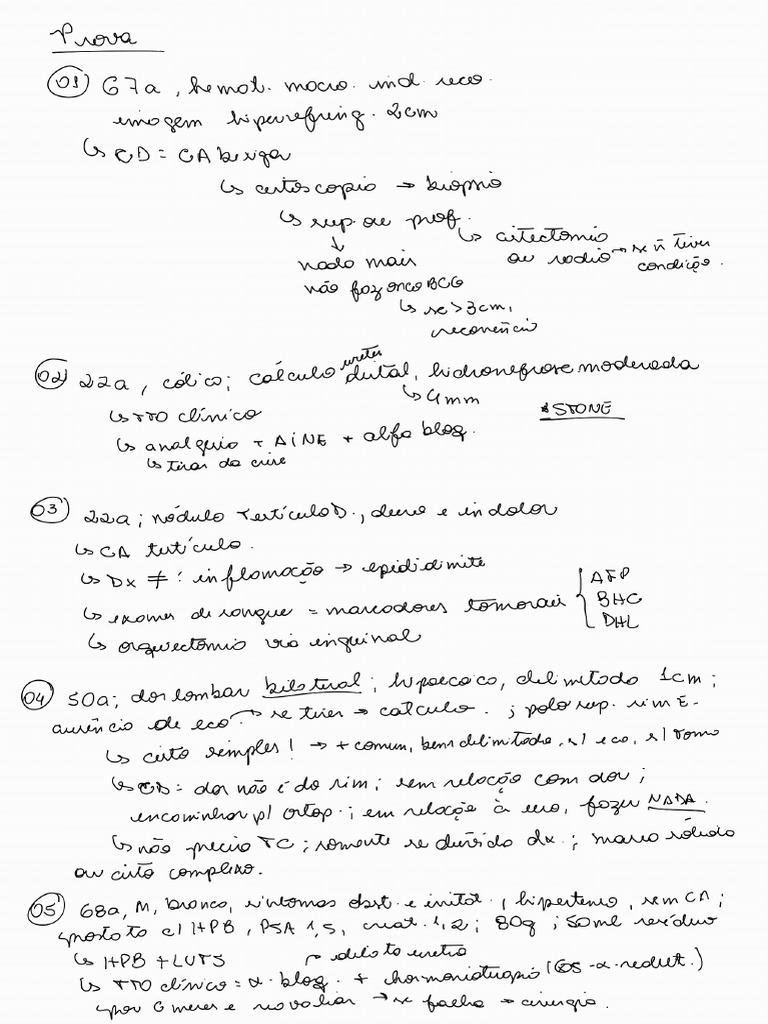 Prova
01) 67a, hemat. macro. ind. reco.
imagem hiperrefring. 2cm
↳ CD = CA bexiga
↳ cistoscopia → biópsia
↳ sup. ou prof.
↓ ↳ cistectomia
nada mais ou radio → se ñ tiver condição.
não faz onco BCG
↳ se > 3cm,
recorrência
02) 22a, cólica; cálculo ureter distal, hidronefrose moderada
↳ 4mm
↳ TTO clínico *STONE
↳ analgesia + AINE + alfa bloq.
↳ tirar da crise
03) 22a; nódulo testículo D., duro e indolor
↳ CA testículo.
↳ Dx ≠: inflamação → epididimite
↳ exames de sangue = marcadores tumorais { AFP BHCG DHL
↳ orquiectomia via inguinal
04) 50a; dor lombar bilateral; hipoecoico, delimitado 1cm;
ausência de eco → se tiver → cálculo. ; polo sup. rim E.
↳ cisto simples! → + comum, bem delimitado, s/ eco, s/
↳ CD = dor não é do rim; sem relação com dor;
encaminhar p/ ortop.; em relação à isso, fazer NADA.
↳ não precisa TC; somente se dúvida dx.; massa sólida
ou cisto complexo.
05) 68a, M, branco, sintomas obst. e irritat., hipertenso, sem CA;
próstata c/ HPB, PSA 1,5, creat. 1,2; 80g; 50ml resíduo
↳ HPB + LUTS → dilata uretra
↳ TTO clínico = α-bloq. + hormonioterapia (5-α-redut.)
por 6 meses e reavaliar → se falha → cirurgia.